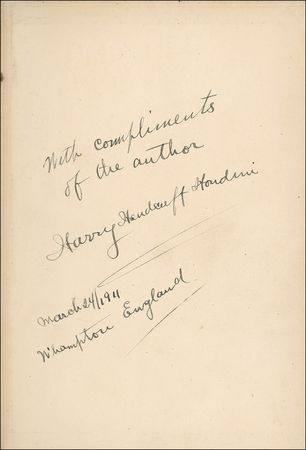 With compliments
of the author
Harry Handcuff Houdini
March 24/1911
W'hampton England